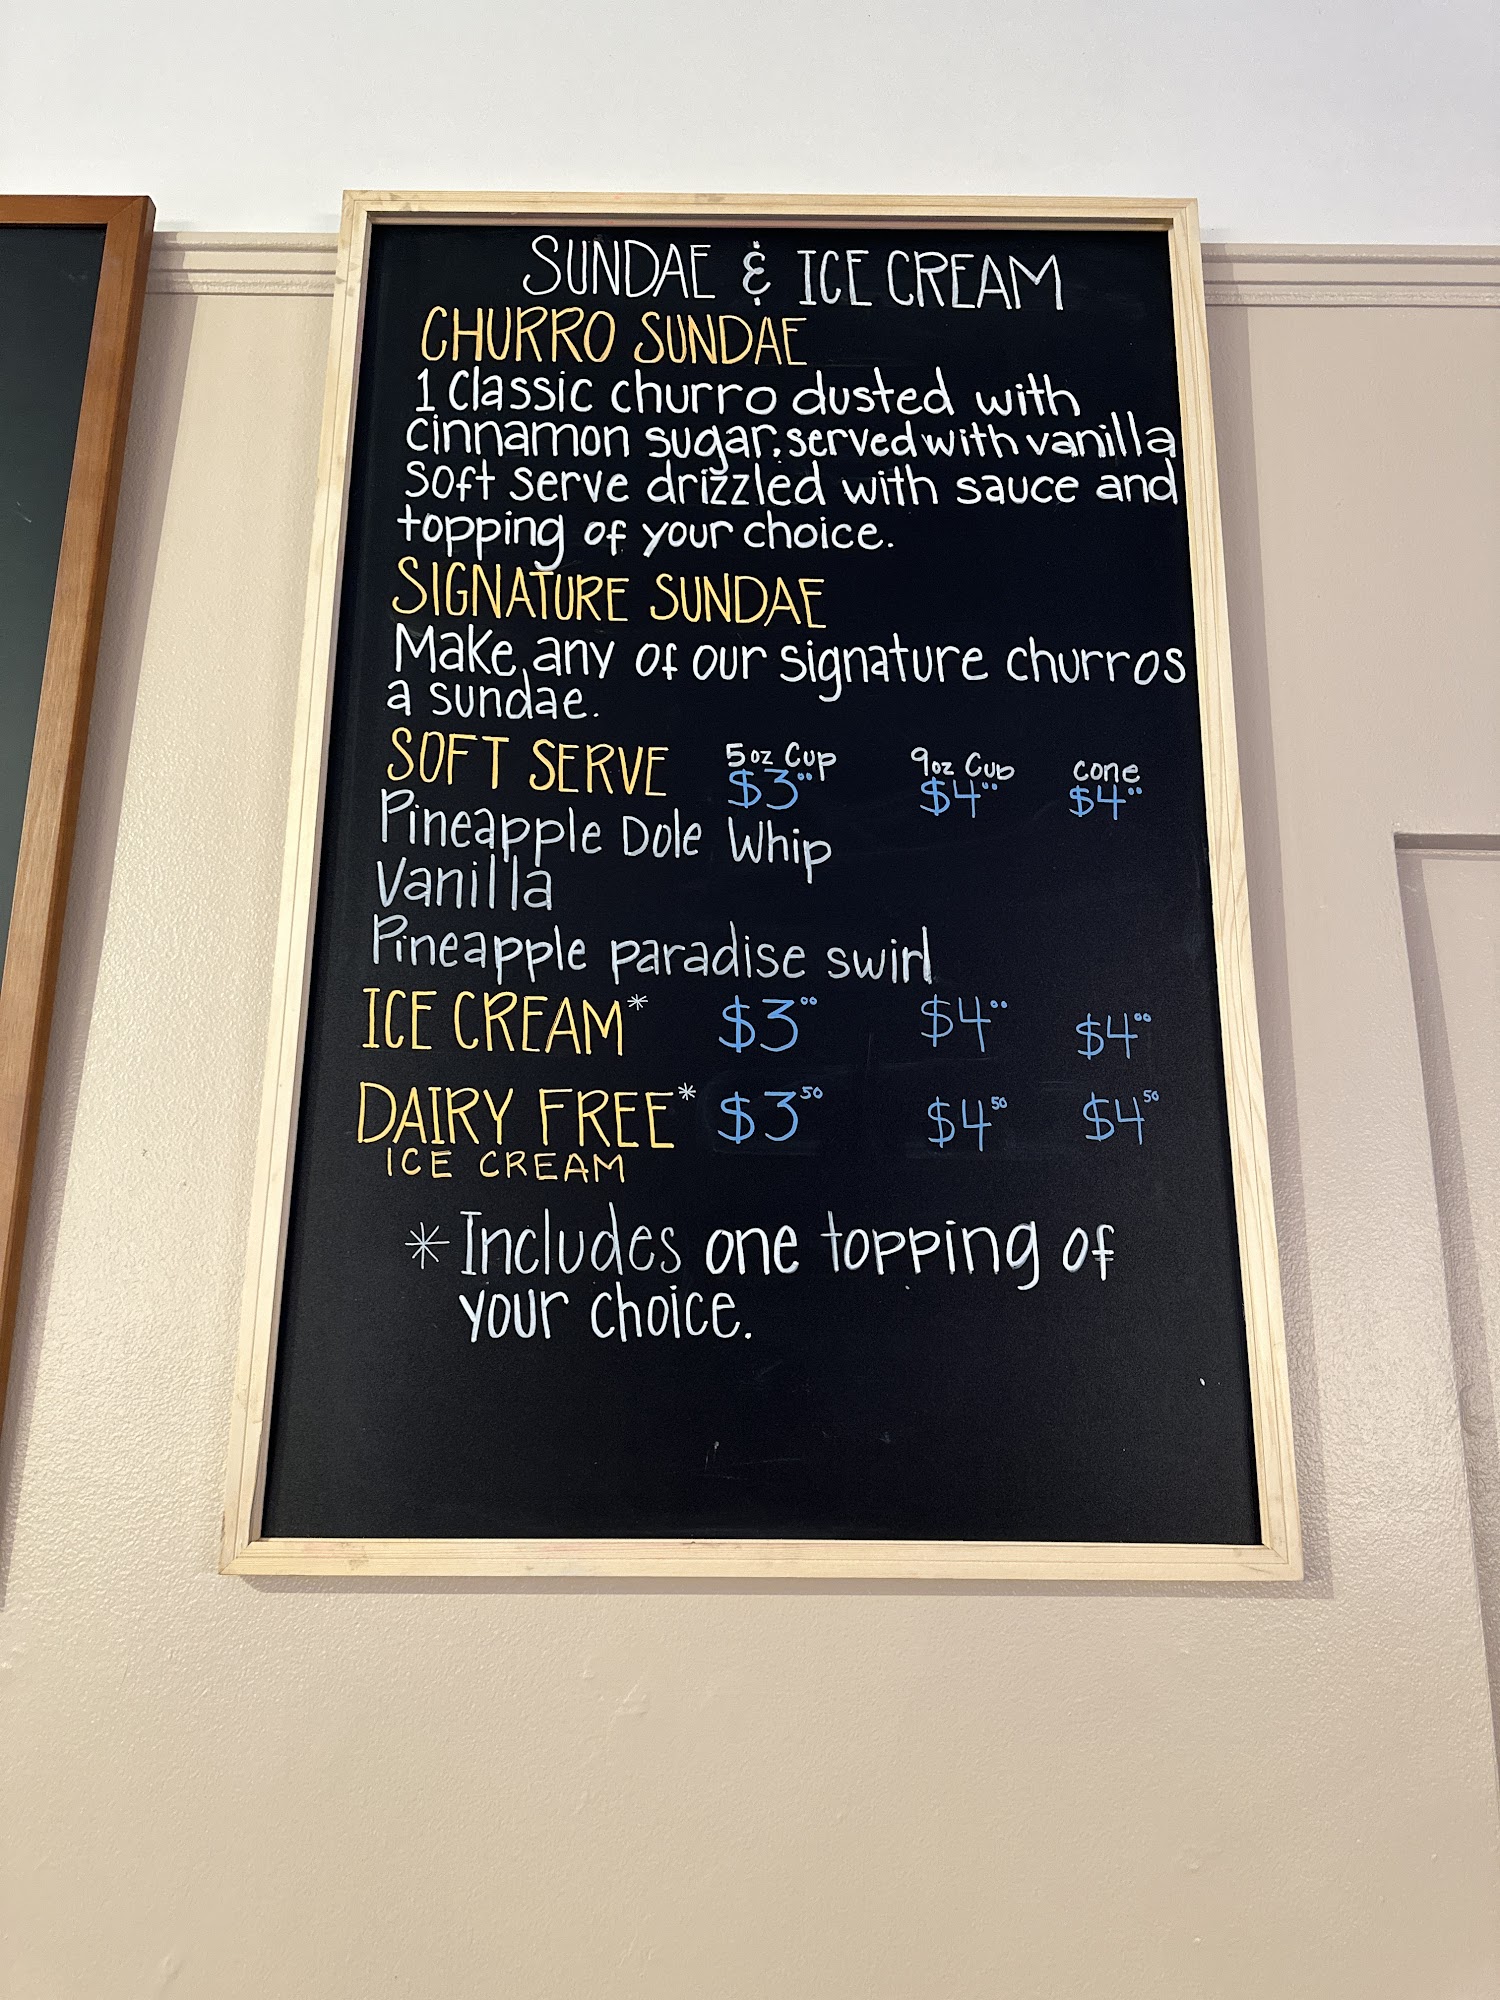 SUNDAE & ICE CREAM
CHURRO SUNDAE
1 Classic churro dusted with
cinnamon sugar, served with vanilla
soft serve drizzled with sauce and
topping of your choice.
SIGNATURE SUNDAE
Make any of our signature churros
a sundae.
SOFT SERVE 5oz Cup 9oz Cup cone
$3.00 $4.00 $4.00
Pineapple Dole Whip
Vanilla
Pineapple paradise swirl
ICE CREAM* $3.00 $4.00 $4.00
DAIRY FREE* $3.50 $4.50 $4.50
ICE CREAM
* Includes one topping of
your choice.